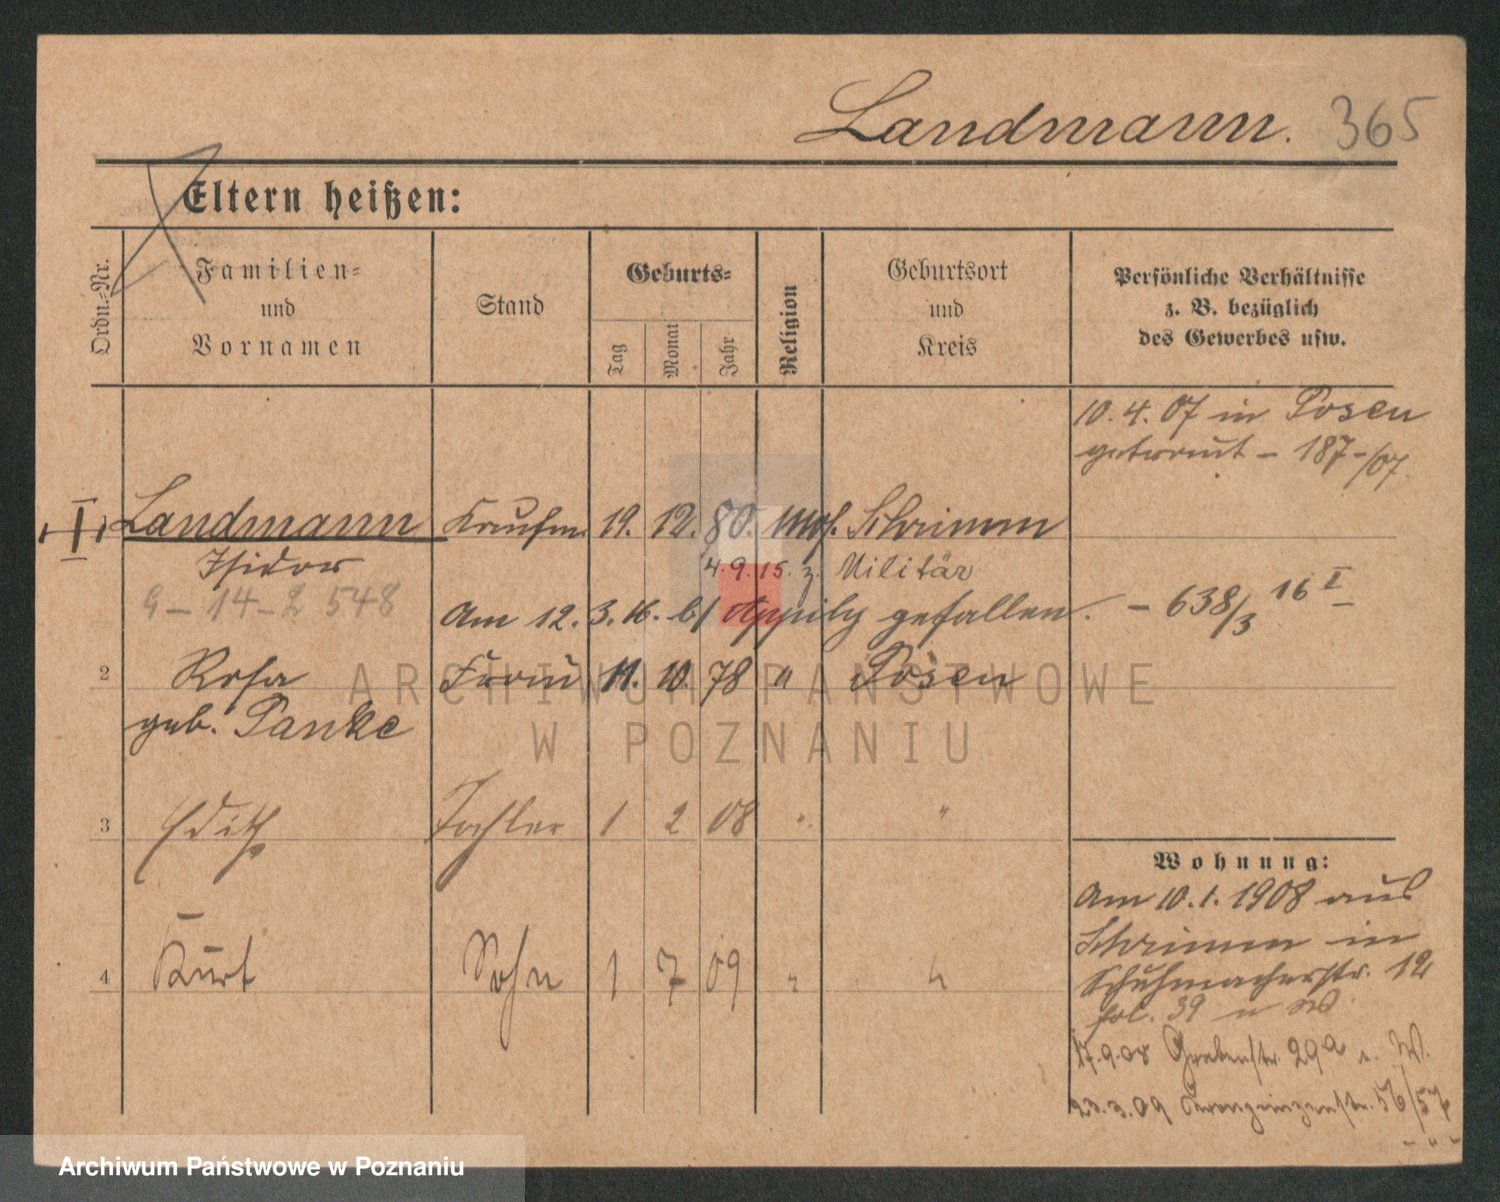 Landmann. 365
Eltern heißen:
Ordn.-Nr.
Familien-
und
Vornamen
Stand
Geburts-
Tag
Monat
Jahr
Religion
Geburtsort
und
Kreis
Persönliche Verhältnisse
z. B. bezüglich
des Gewerbes usw.
10. 4. 07 in Posen
getraut - 187-/07.
I
Landmann Kaufm. 19. 12. 80. mos. Schrimm
Isidor 4. 9. 15. z. Militär
9 - 14 - 2 548
Am 12. 3. 16. b/ gefallen. - 638/3 16 I
2 Rosa Frau 11. 10. 78 " Posen
geb. Panke
3 Edith Tochter 1 2 08 " "
4 Kurt Sohn 1 7 09 " "
Wohnung:
Am 10. 1. 1908 aus
Schrimm in
Schuhmacherstr. 12
fol. 39 u W
17. 9. 08 Grabenstr. 29a u. W.
23. 3. 09 Kronprinzenstr. 56/57
- " -
ARCHIWUM PAŃSTWOWE
W POZNANIU
Archiwum Państwowe w Poznaniu